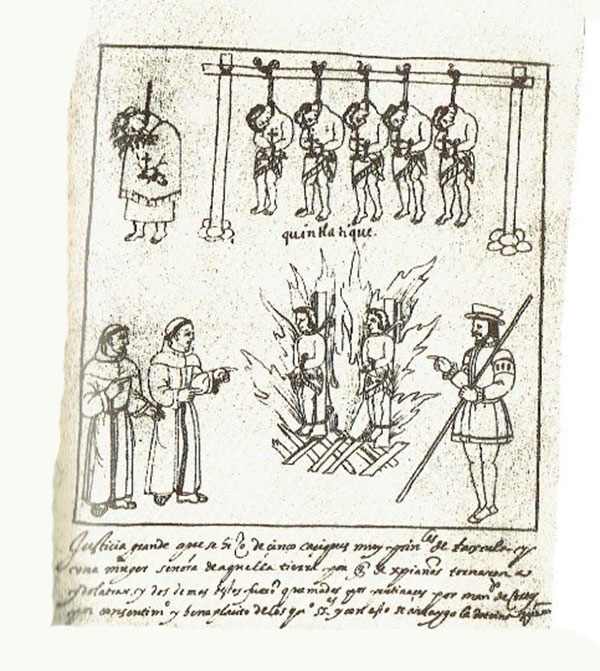 quintlatique.
Justicia grande que se hiº de cinco caciques muy prinˡᵉˢ de taxcala y
una muger señora de aquella tierra por q̃ de xpianos tornaron a
ydolatrar, y dos demas destos fuerõ quemados por pertinaçes por manᵈº de Cortes
por consentimᵒ y beneplacito de los quᵒ Sᵉˢ y con esto se arraygo la doctrina